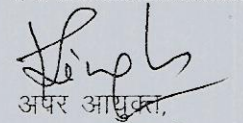 अपर आयुक्त,